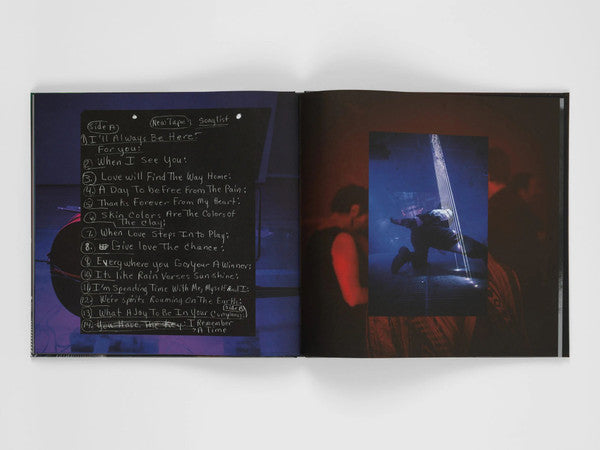 Side A New Tape: Songlist
1) I'll Always Be Here
For you:
2. When I See You:
3. Love will Find The Way Home:
4. A Day To be Free From The Pain:
5. Thanks Forever From My Heart:
6. Skin Colors Are The Colors of
The clay:
7. When Love Steps Into Play:
8. Give love The Chance:
9. Everywhere you Go your A Winner:
10. Its like Rain Verses Sunshine:
11. I'm Spending Time With Me, Myself And I:
12. Were spirits Roaming On The Earth:
13. What A Joy To Be In Your
Side B
14. You Have The Key: I Remember
A Time